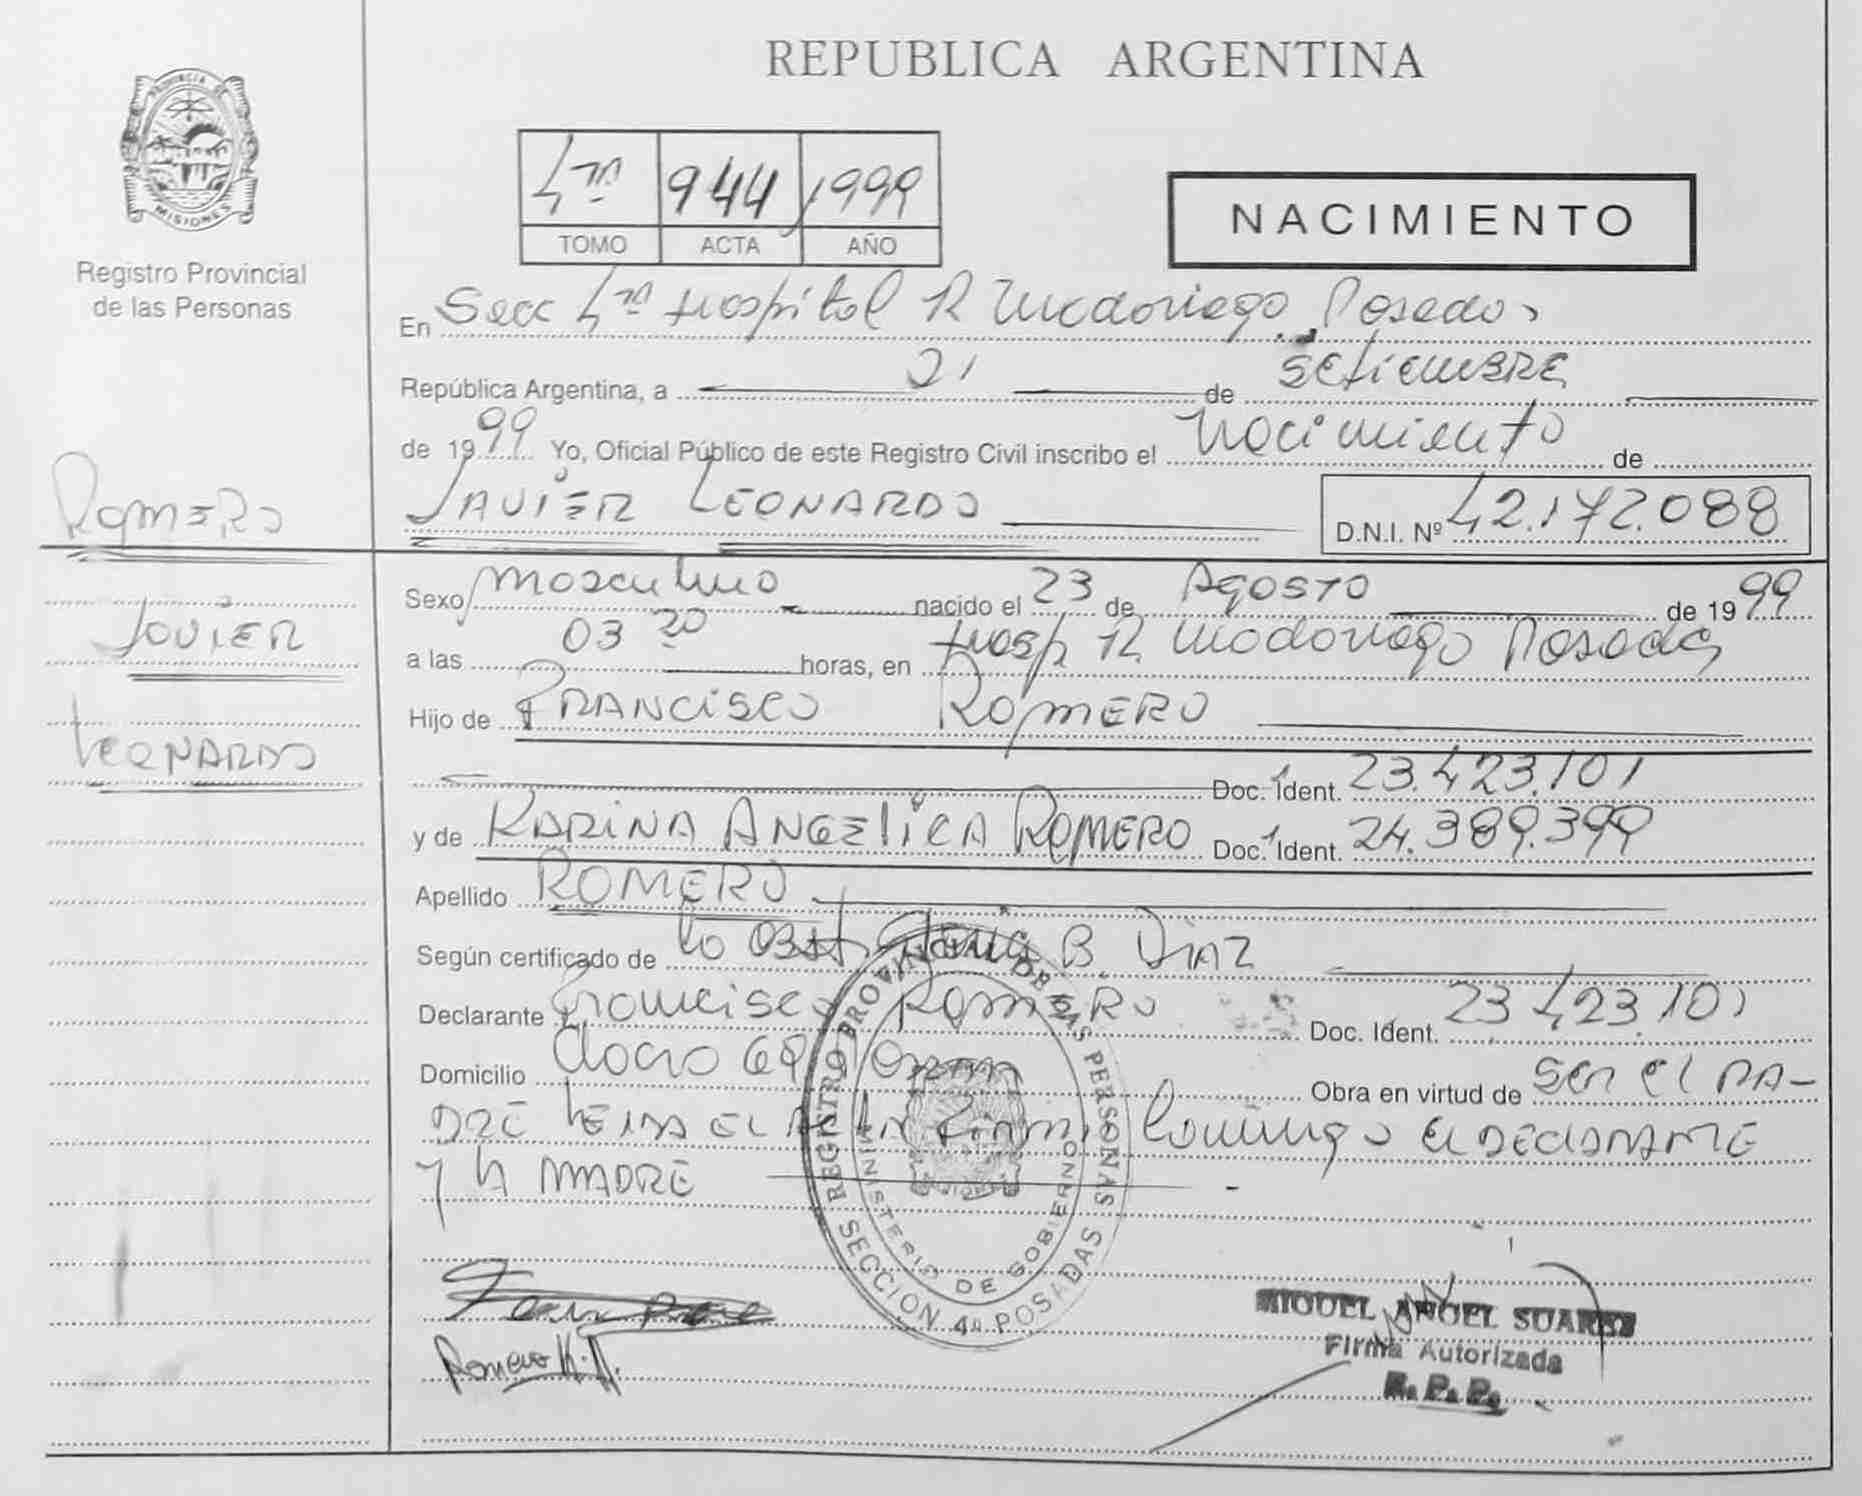 REPUBLICA ARGENTINA
PROVINCIA DE
MISIONES
Registro Provincial
de las Personas
4ta 944 1999
TOMO ACTA AÑO
NACIMIENTO
En Secc 4ta Hospital R Madariaga Posadas
República Argentina, a 21 de setiembre
de 1999 Yo, Oficial Público de este Registro Civil inscribo el Nacimiento de
Romero
JAVIER LEONARDO D.N.I. Nº 42.172.088
Sexo masculino nacido el 23 de Agosto de 1999
Javier
a las 03 20 horas, en Hosp R. Madariaga Posadas
Hijo de FRANCISCO ROMERO
LEONARDO
Doc. Ident. 23.423.101
y de KARINA ANGELICA ROMERO Doc. Ident. 24.389.399
Apellido ROMERO
Según certificado de la Obst. B. DIAZ
Declarante Francisco Romero Doc. Ident. 23 423.101
Domicilio Obra en virtud de ser el PA-
DRE LEIDA EL ACTA conmigo el DECLARANTE
y LA MADRE
REGISTRO PROVINCIAL DE LAS PERSONAS
MINISTERIO DE GOBIERNO
SECCION 4a POSADAS
Romero K.A.
MIGUEL ANGEL SUAREZ
Firma Autorizada
R. P. P.